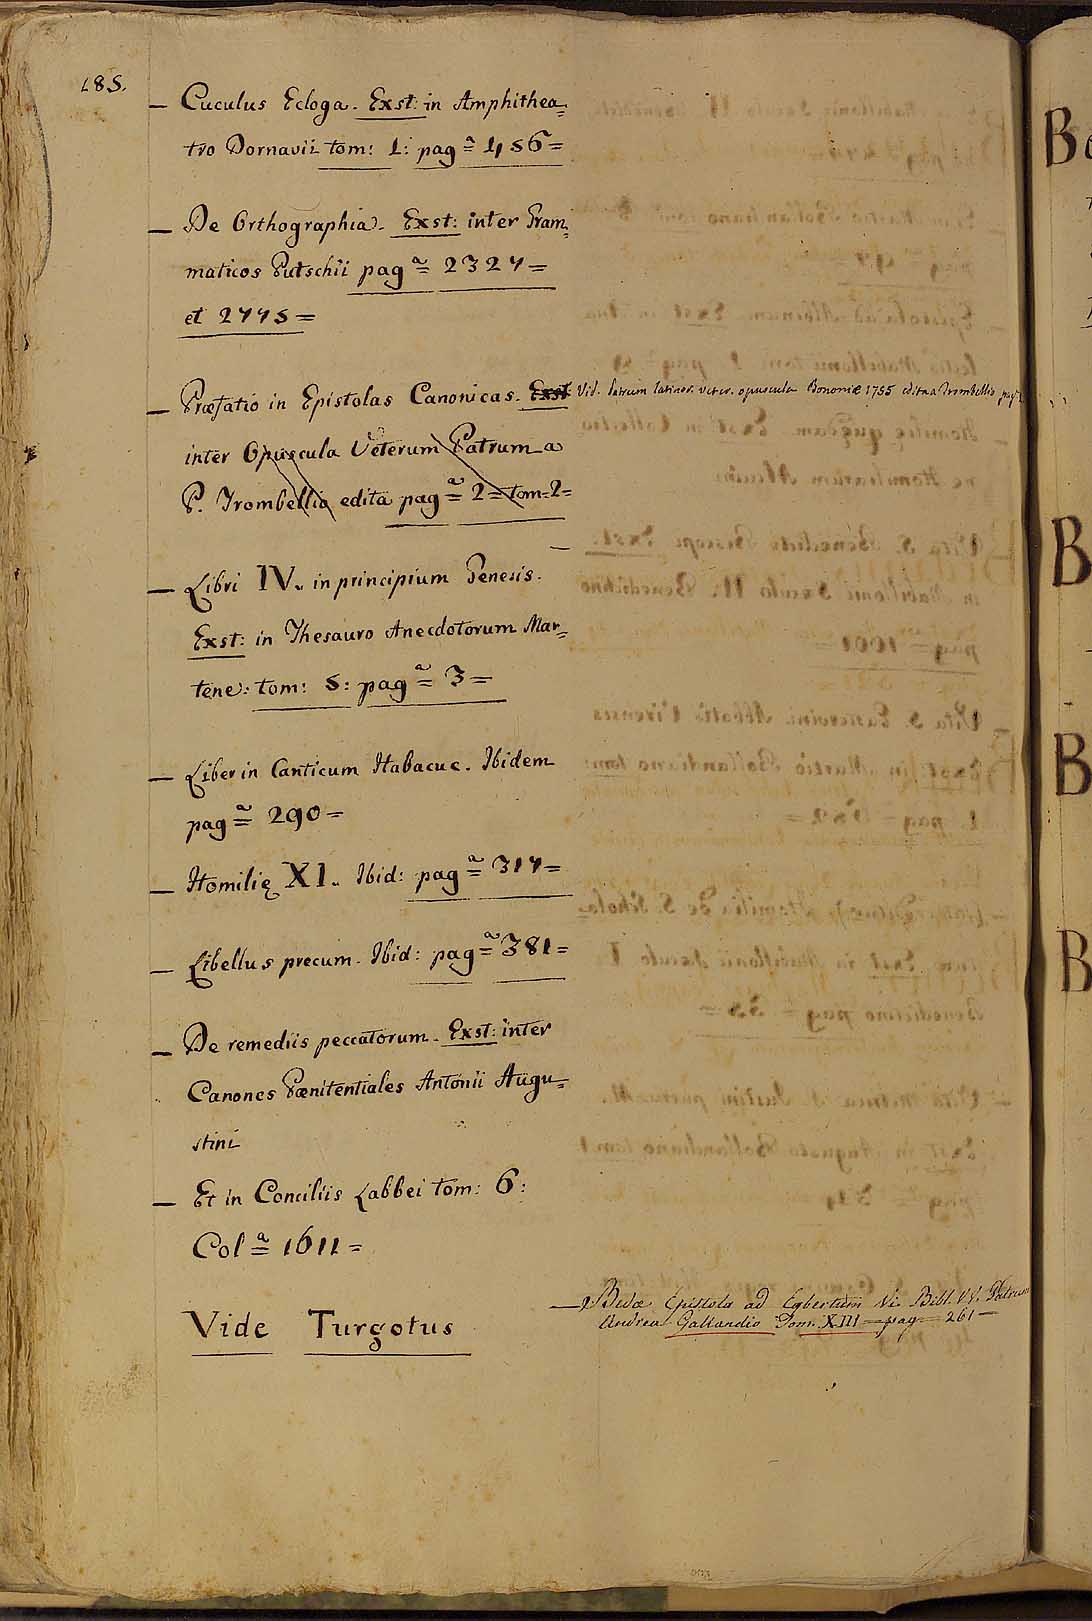 185.
— Cuculus Ecloga. Exst: in Amphithea=
tro Dornavii tom: 1: pagª= 456=
— De Orthographia. Exst: inter Gram=
maticos Putschii pagª= 2327=
et 2775=
— Præfatio in Epistolas Canonicas. Exst: Vid. Patrum latinor. veter. opuscula Bononiæ 1755 edita a Trombellio pag.
inter Opuscula Veterum Patrum a
P. Trombellio edita pagª= 2= tom=2=
— Libri IV. in principium Genesis.
Exst: in Thesauro Anecdotorum Mar=
tene: tom: 5: pagª= 3=
— Liber in Canticum Habacuc. Ibidem
pagª= 290=
— Homilię XI. Ibid: pagª= 317=
— Libellus precum. Ibid: pagª= 381=
— De remediis peccatorum. Exst: inter
Canones Pœnitentiales Antonii Augu=
stini
— Et in Conciliis Labbei tom: 6:
Colª= 1611=
Vide Turgotus
— Bedæ Epistola ad Egbertum in Bibl. VV. Patrum
Andreæ Gallandio Tom. XIII pag 261—